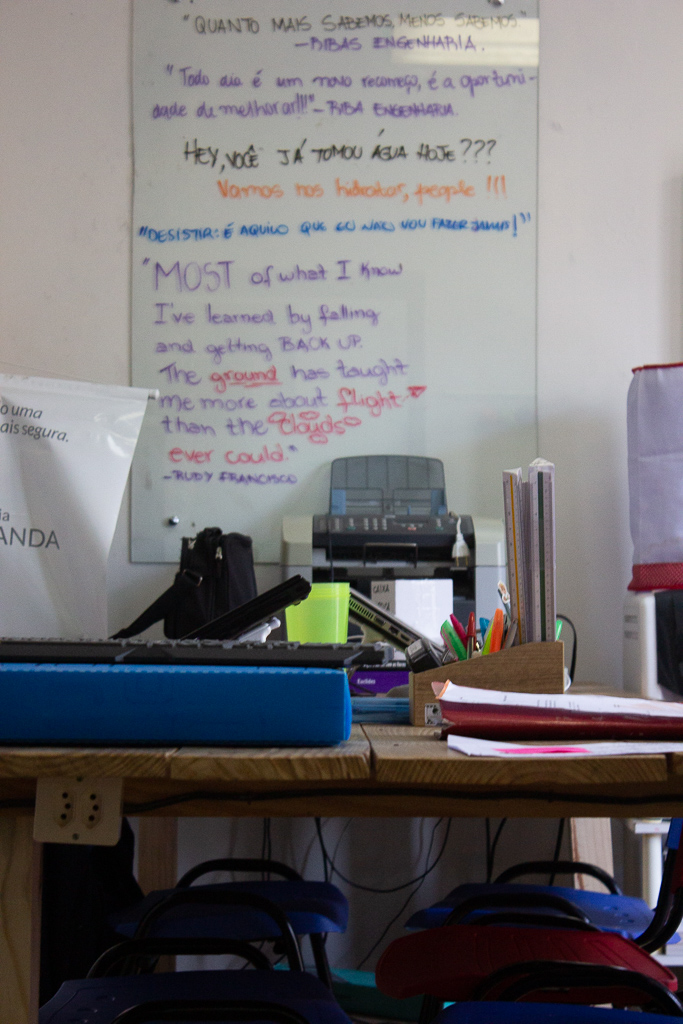 "QUANTO MAIS SABEMOS, MENOS SABEMOS."
- RIBAS ENGENHARIA.
"Todo dia é um novo recomeço, é a oportuni-
dade de melhorar!!!" - RIBA ENGENHARIA.
HEY, VOCÊ JÁ TOMOU ÁGUA HOJE???
Vamos nos hidratar, people !!!
"DESISTIR: É AQUILO QUE EU NÃO VOU FAZER JAMAIS!"
"MOST of what I know
I've learned by falling
and getting BACK UP.
The ground has taught
me more about flight
than the clouds
ever could."
- RUDY FRANCISCO
o uma
ais segura.
ia
ANDA
CAIXA